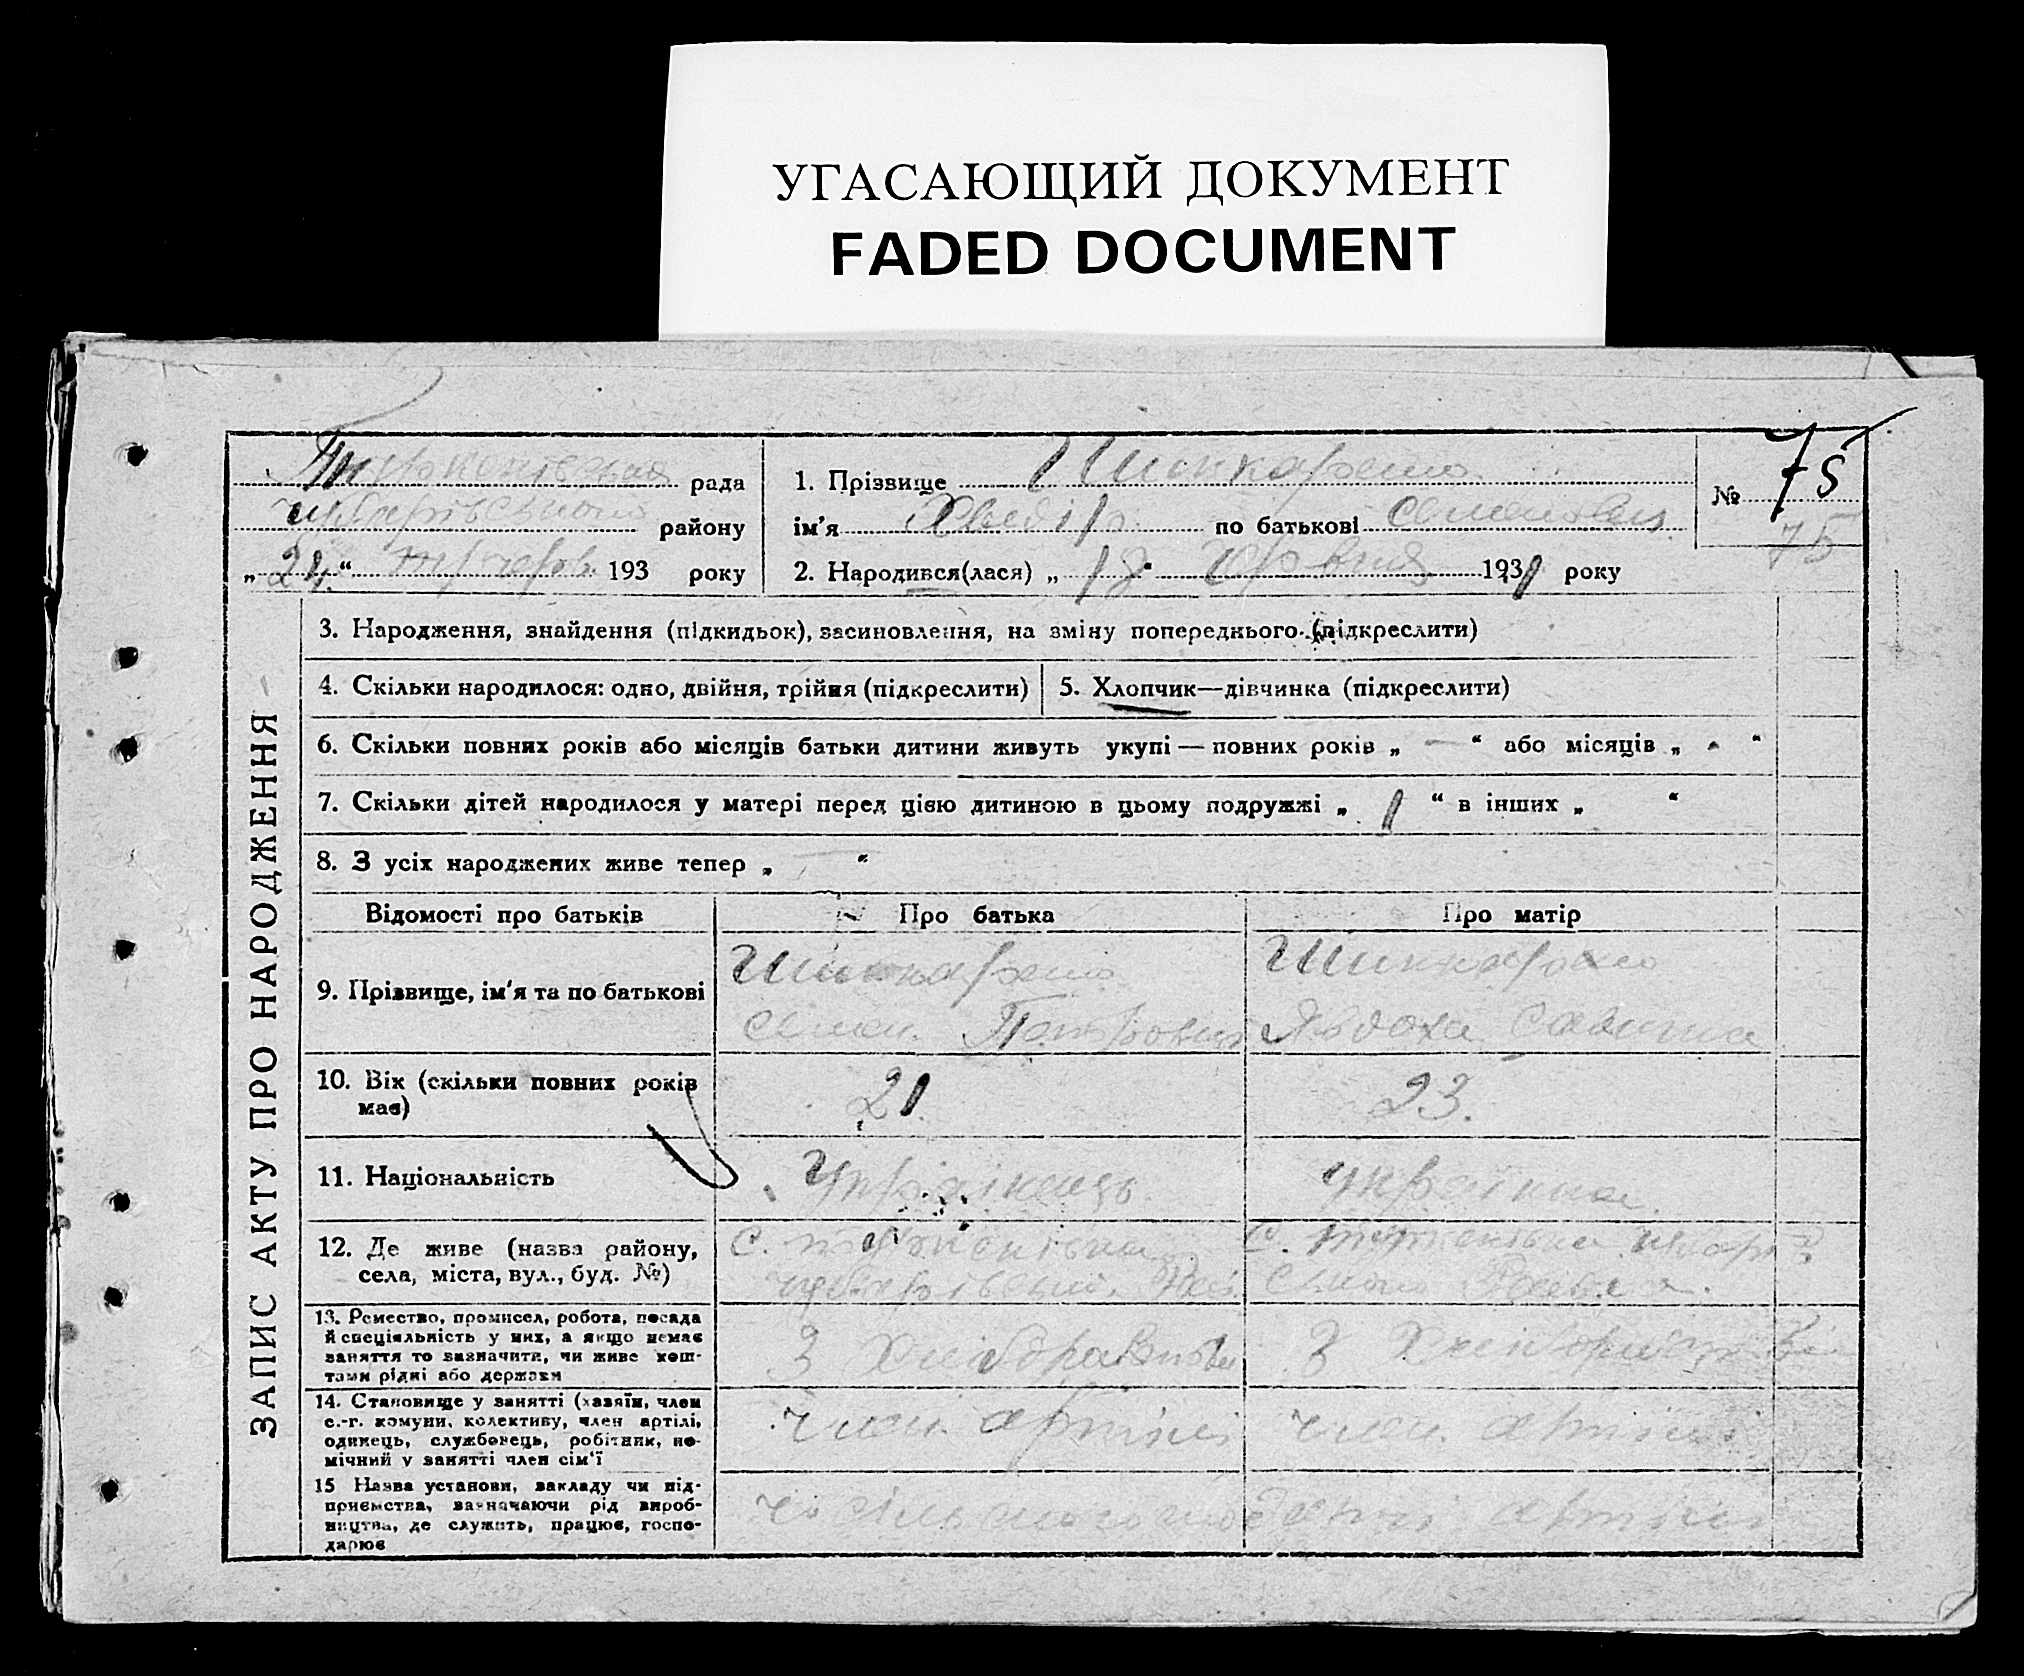 УГАСАЮЩИЙ ДОКУМЕНТ
FADED DOCUMENT
рада
району
„24“ 193 року
1. Прізвище Шинкаренко
ім'я Хведір по батькові Семенович
2. Народився(лася) „18“ 1931 року
№ 75
75
ЗАПИС АКТУ ПРО НАРОДЖЕННЯ
3. Народження, знайдення (підкидьок), засиновлення, на зміну попереднього (підкреслити)
4. Скільки народилося: одно, двійня, трійня (підкреслити)
5. Хлопчик—дівчинка (підкреслити)
6. Скільки повних років або місяців батьки дитини живуть укупі — повних років „ — “ або місяців „ “
7. Скільки дітей народилося у матері перед цією дитиною в цьому подружжі „ 1 “ в інших „ “
8. З усіх народжених живе тепер „ — “
Відомості про батьків Про батька Про матір
9. Прізвище, ім'я та по батькові
Шинкаренко
Семен Петрович
Шинкаренко
Явдоха
10. Вік (скільки повних років
має)
21
23.
11. Національність
Українець
Українка
12. Де живе (назва району,
села, міста, вул., буд. №)
с.
с.
13. Ремество, промисел, робота, посада
й спеціяльність у них, а якщо немає
заняття то зазначити, чи живе кош-
тами рідні або держави
З
З
14. Становище у занятті (хазяїн, член
с.-г. комуни, колективу, член артілі,
одинець, службовець, робітник, по-
мічний у занятті член сім'ї
член артілі
член артілі
15 Назва установи, закладу чи під-
приємства, зазначаючи рід вироб-
ництва, де служить, працює, госпо-
дарює
артілі